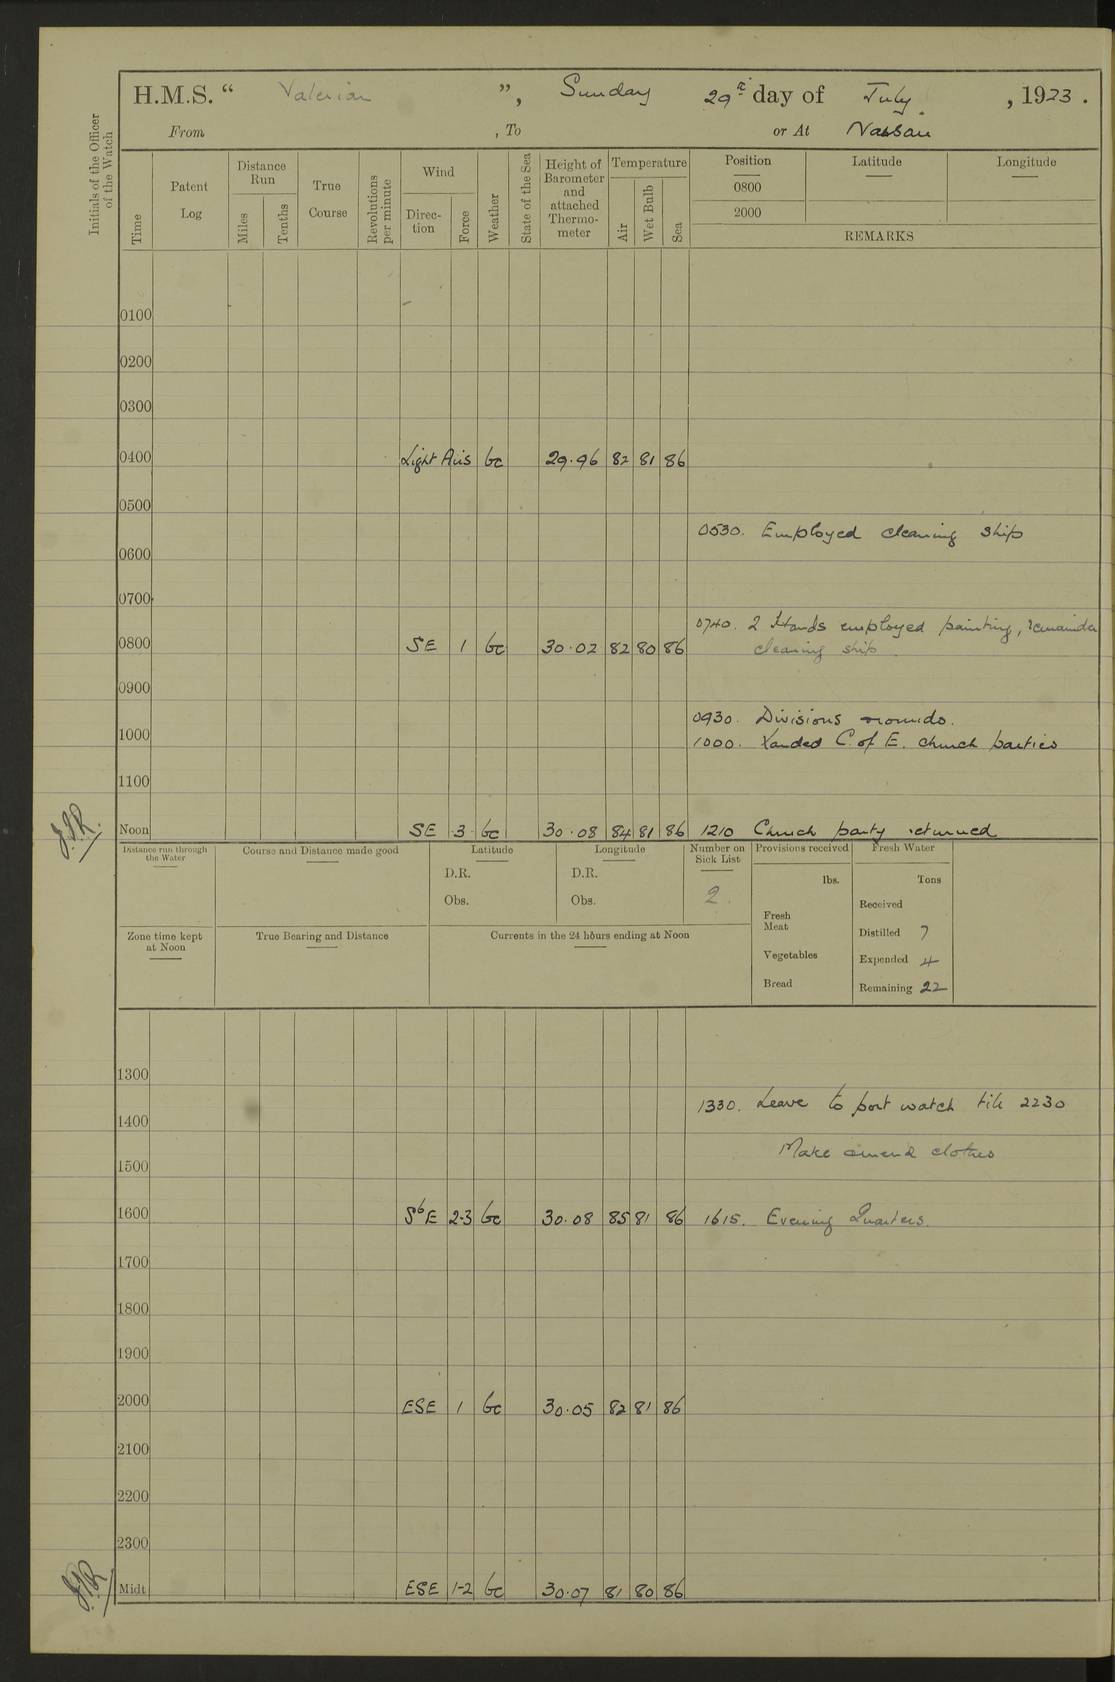 H.M.S. “ Valerian ”, Sunday 29th day of July, 1923.
From , To or At Nassau
Initials of the Officer of the Watch
Time Patent Log Distance Run Miles Tenths True Course Revolutions per minute Wind Direc-tion Force Weather State of the Sea Height of Barometer and attached Thermo-meter Temperature Air Wet Bulb Sea Position 0800 2000 Latitude Longitude
REMARKS
0100
0200
0300
0400 Light Airs bc 29.96 82 81 86
0500
0530. Employed cleaning ship
0600
0700
0740. 2 Hands employed painting, remainder
0800 SE 1 bc 30.02 82 80 86 cleaning ship.
0900
0930. Divisions rounds.
1000 1000. Landed C. of E. church parties
1100
J.S.R. Noon SE 3 bc 30.08 84 81 86 1210 Church party returned
Distance run through the Water Course and Distance made good Latitude Longitude Number on Sick List Provisions received Fresh Water
D.R. D.R. lbs. Tons
Obs. Obs. 2 Received
Fresh Meat
Distilled 7
Zone time kept at Noon True Bearing and Distance Currents in the 24 hours ending at Noon
Vegetables Expended 4
Bread Remaining 22
1300
1330. Leave to port watch till 2230
1400
Make & mend clothes
1500
1600 SbE 2-3 bc 30.08 85 81 86 1615. Evening Quarters.
1700
1800
1900
2000 ESE 1 bc 30.05 82 81 86
2100
2200
2300
Midt ESE 1-2 bc 30.07 81 80 86